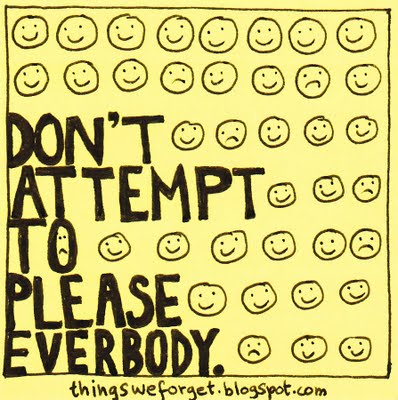 DON'T
ATTEMPT
TO
PLEASE
EVERBODY.
thingsweforget.blogspot.com